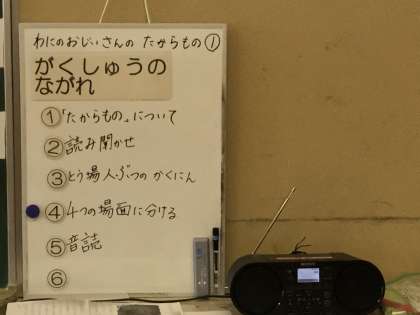 わにのおじいさんの たからもの ①
がくしゅうの
ながれ
① 「たからもの」について
② 読み聞かせ
③ とう場人ぶつの かくにん
④ 4つの場面に分ける
⑤ 音読
⑥
SONY